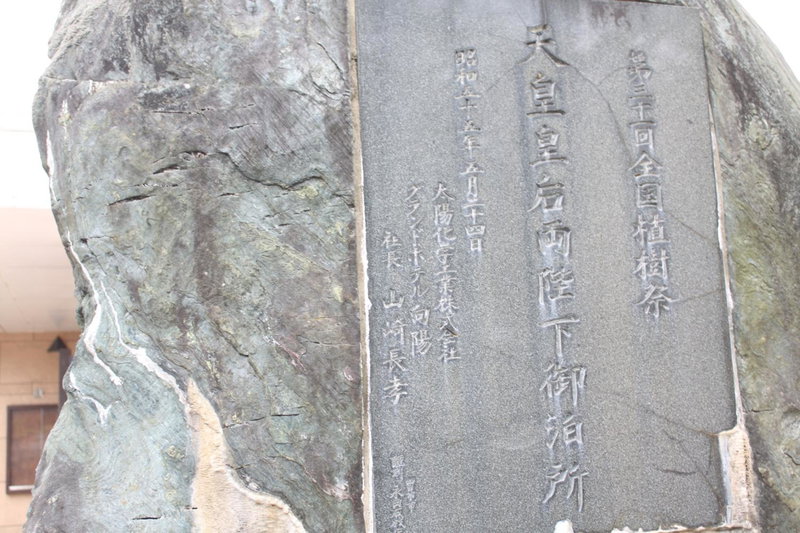 第三十一回全国植樹祭
天皇皇后両陛下御泊所
昭和五十五年五月二十四日
太陽化学工業株式会社
グランドホテル向陽
社長 山崎長孝
四日市